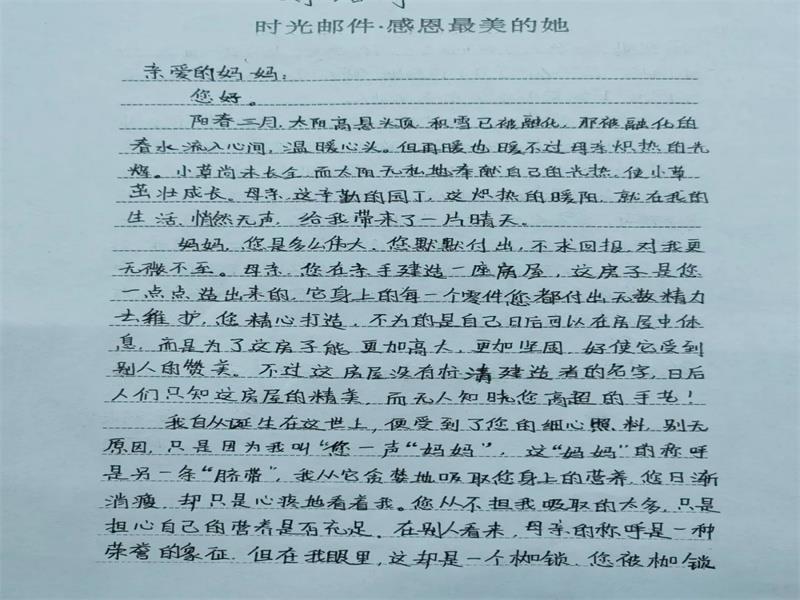 时光邮件·感恩最美的她
亲爱的妈妈：
您好。
阳春三月，太阳高悬头顶，积雪已被融化，那被融化的
春水流入心间，温暖心头。但再暖也暖不过母亲炽热的光
辉。小草尚未长全，而太阳无私地奉献自己的光热，使小草
茁壮成长。母亲，这辛勤的园丁，这炽热的暖阳，就在我的
生活，悄然无声，给我带来了一片晴天。
妈妈，您是多么伟大，您默默付出，不求回报，对我更
无微不至。母亲，您在亲手建造一座房屋，这房子是您
一点点造出来的，它身上的每一个零件您都付出无数精力
去维护，您精心打造，不为的是自己日后可以在房屋中休
息，而是为了这房子能更加高大，更加坚固，好使它受到
别人的赞美。不过这房屋没有标清建造者的名字，日后
人们只知这房屋的精美，而无人知晓您高超的手艺！
我自从诞生在这世上，便受到了您的细心照料，别无
原因，只是因为我叫“您一声“妈妈”，这“妈妈”的称呼
是另一条“脐带”，我从它贪婪地吸取您身上的营养，您日渐
消瘦，却只是心疼地看着我。您从不担我吸取的太多，只是
担心自己的营养是否充足。在别人看来，母亲的称呼是一种
荣誉的象征，但在我眼里，这却是一个枷锁，您被枷锁